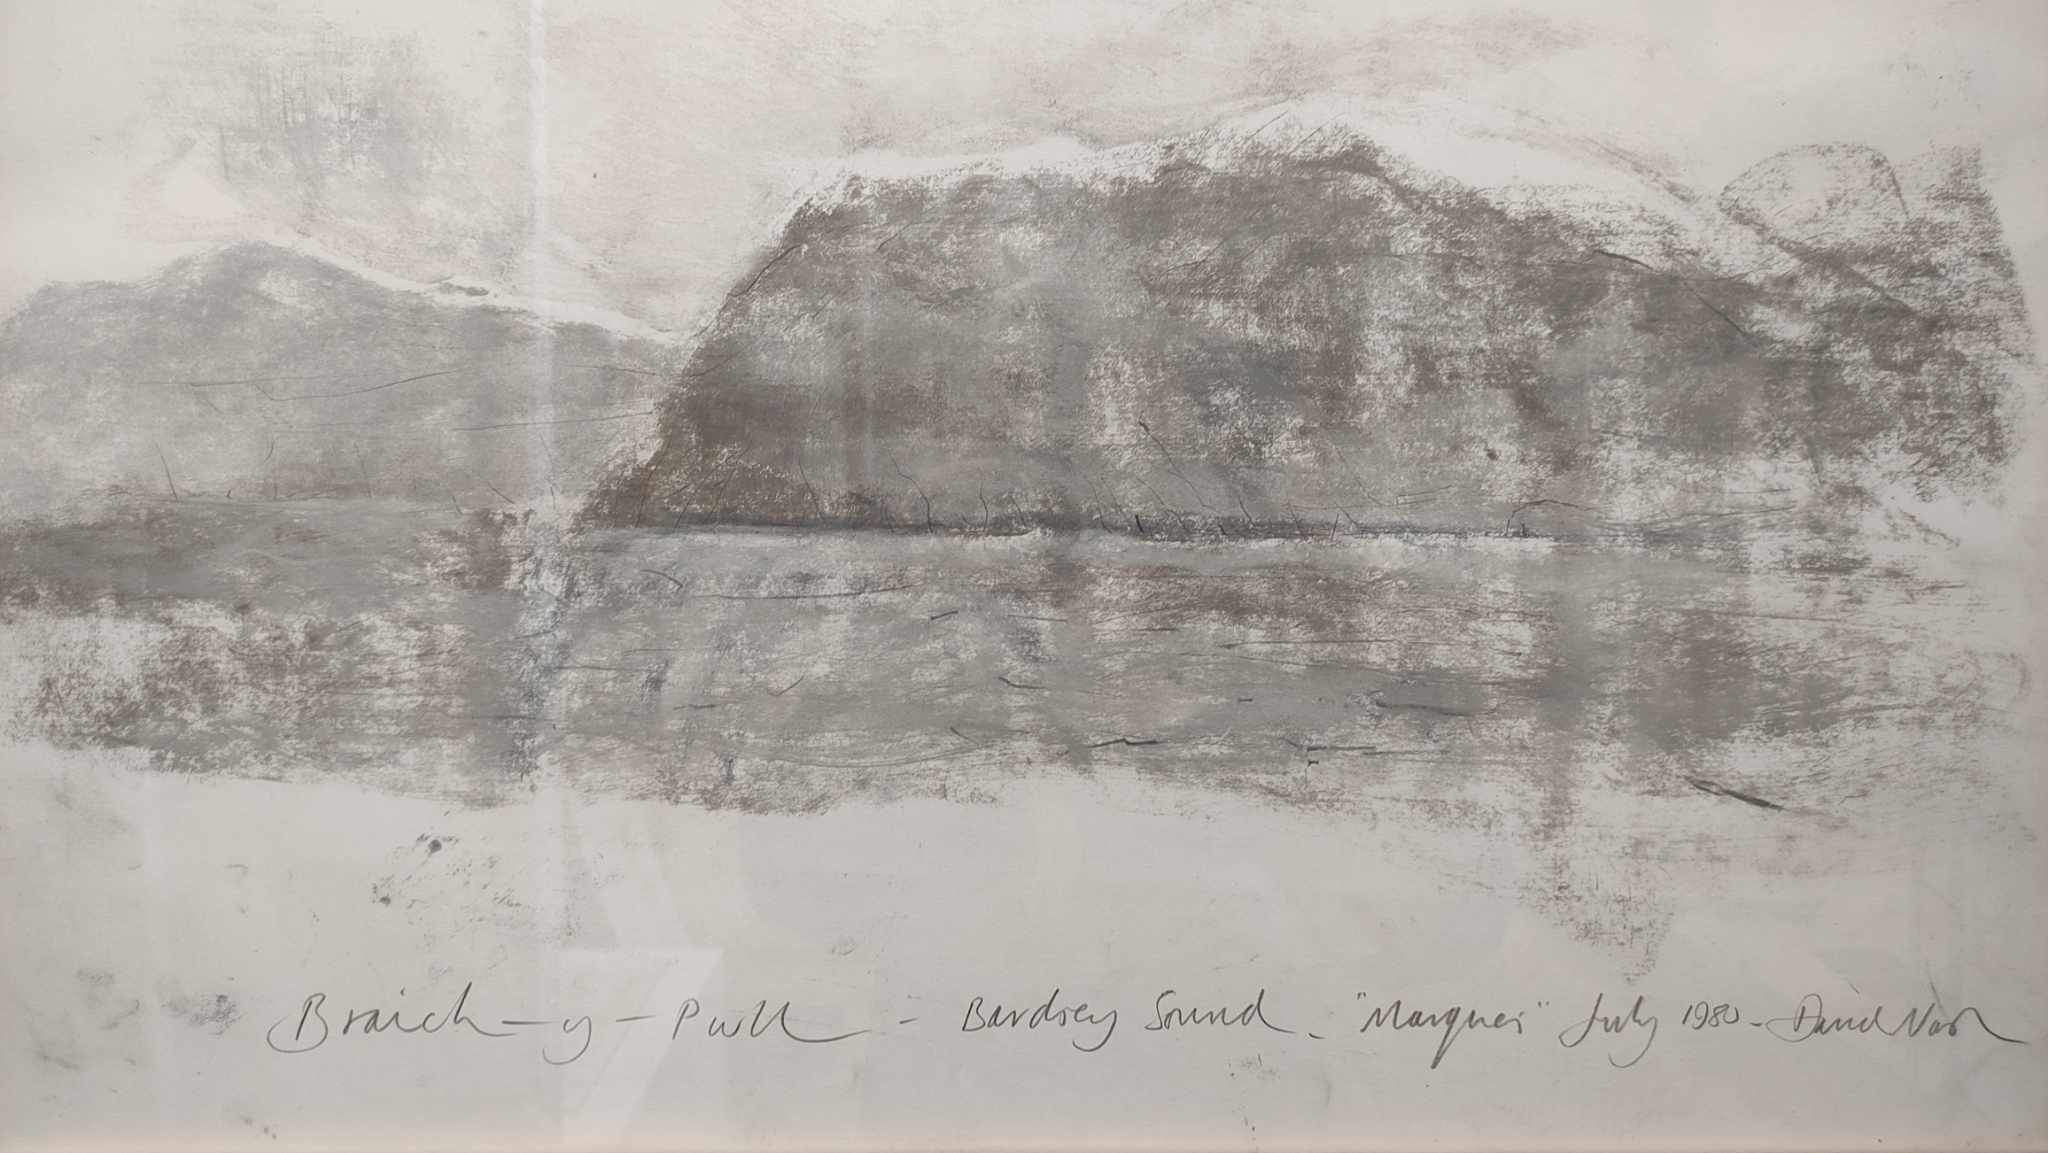 Braich-y-Pwll - Bardsey Sound - "Marques" July 1980 - David Nash